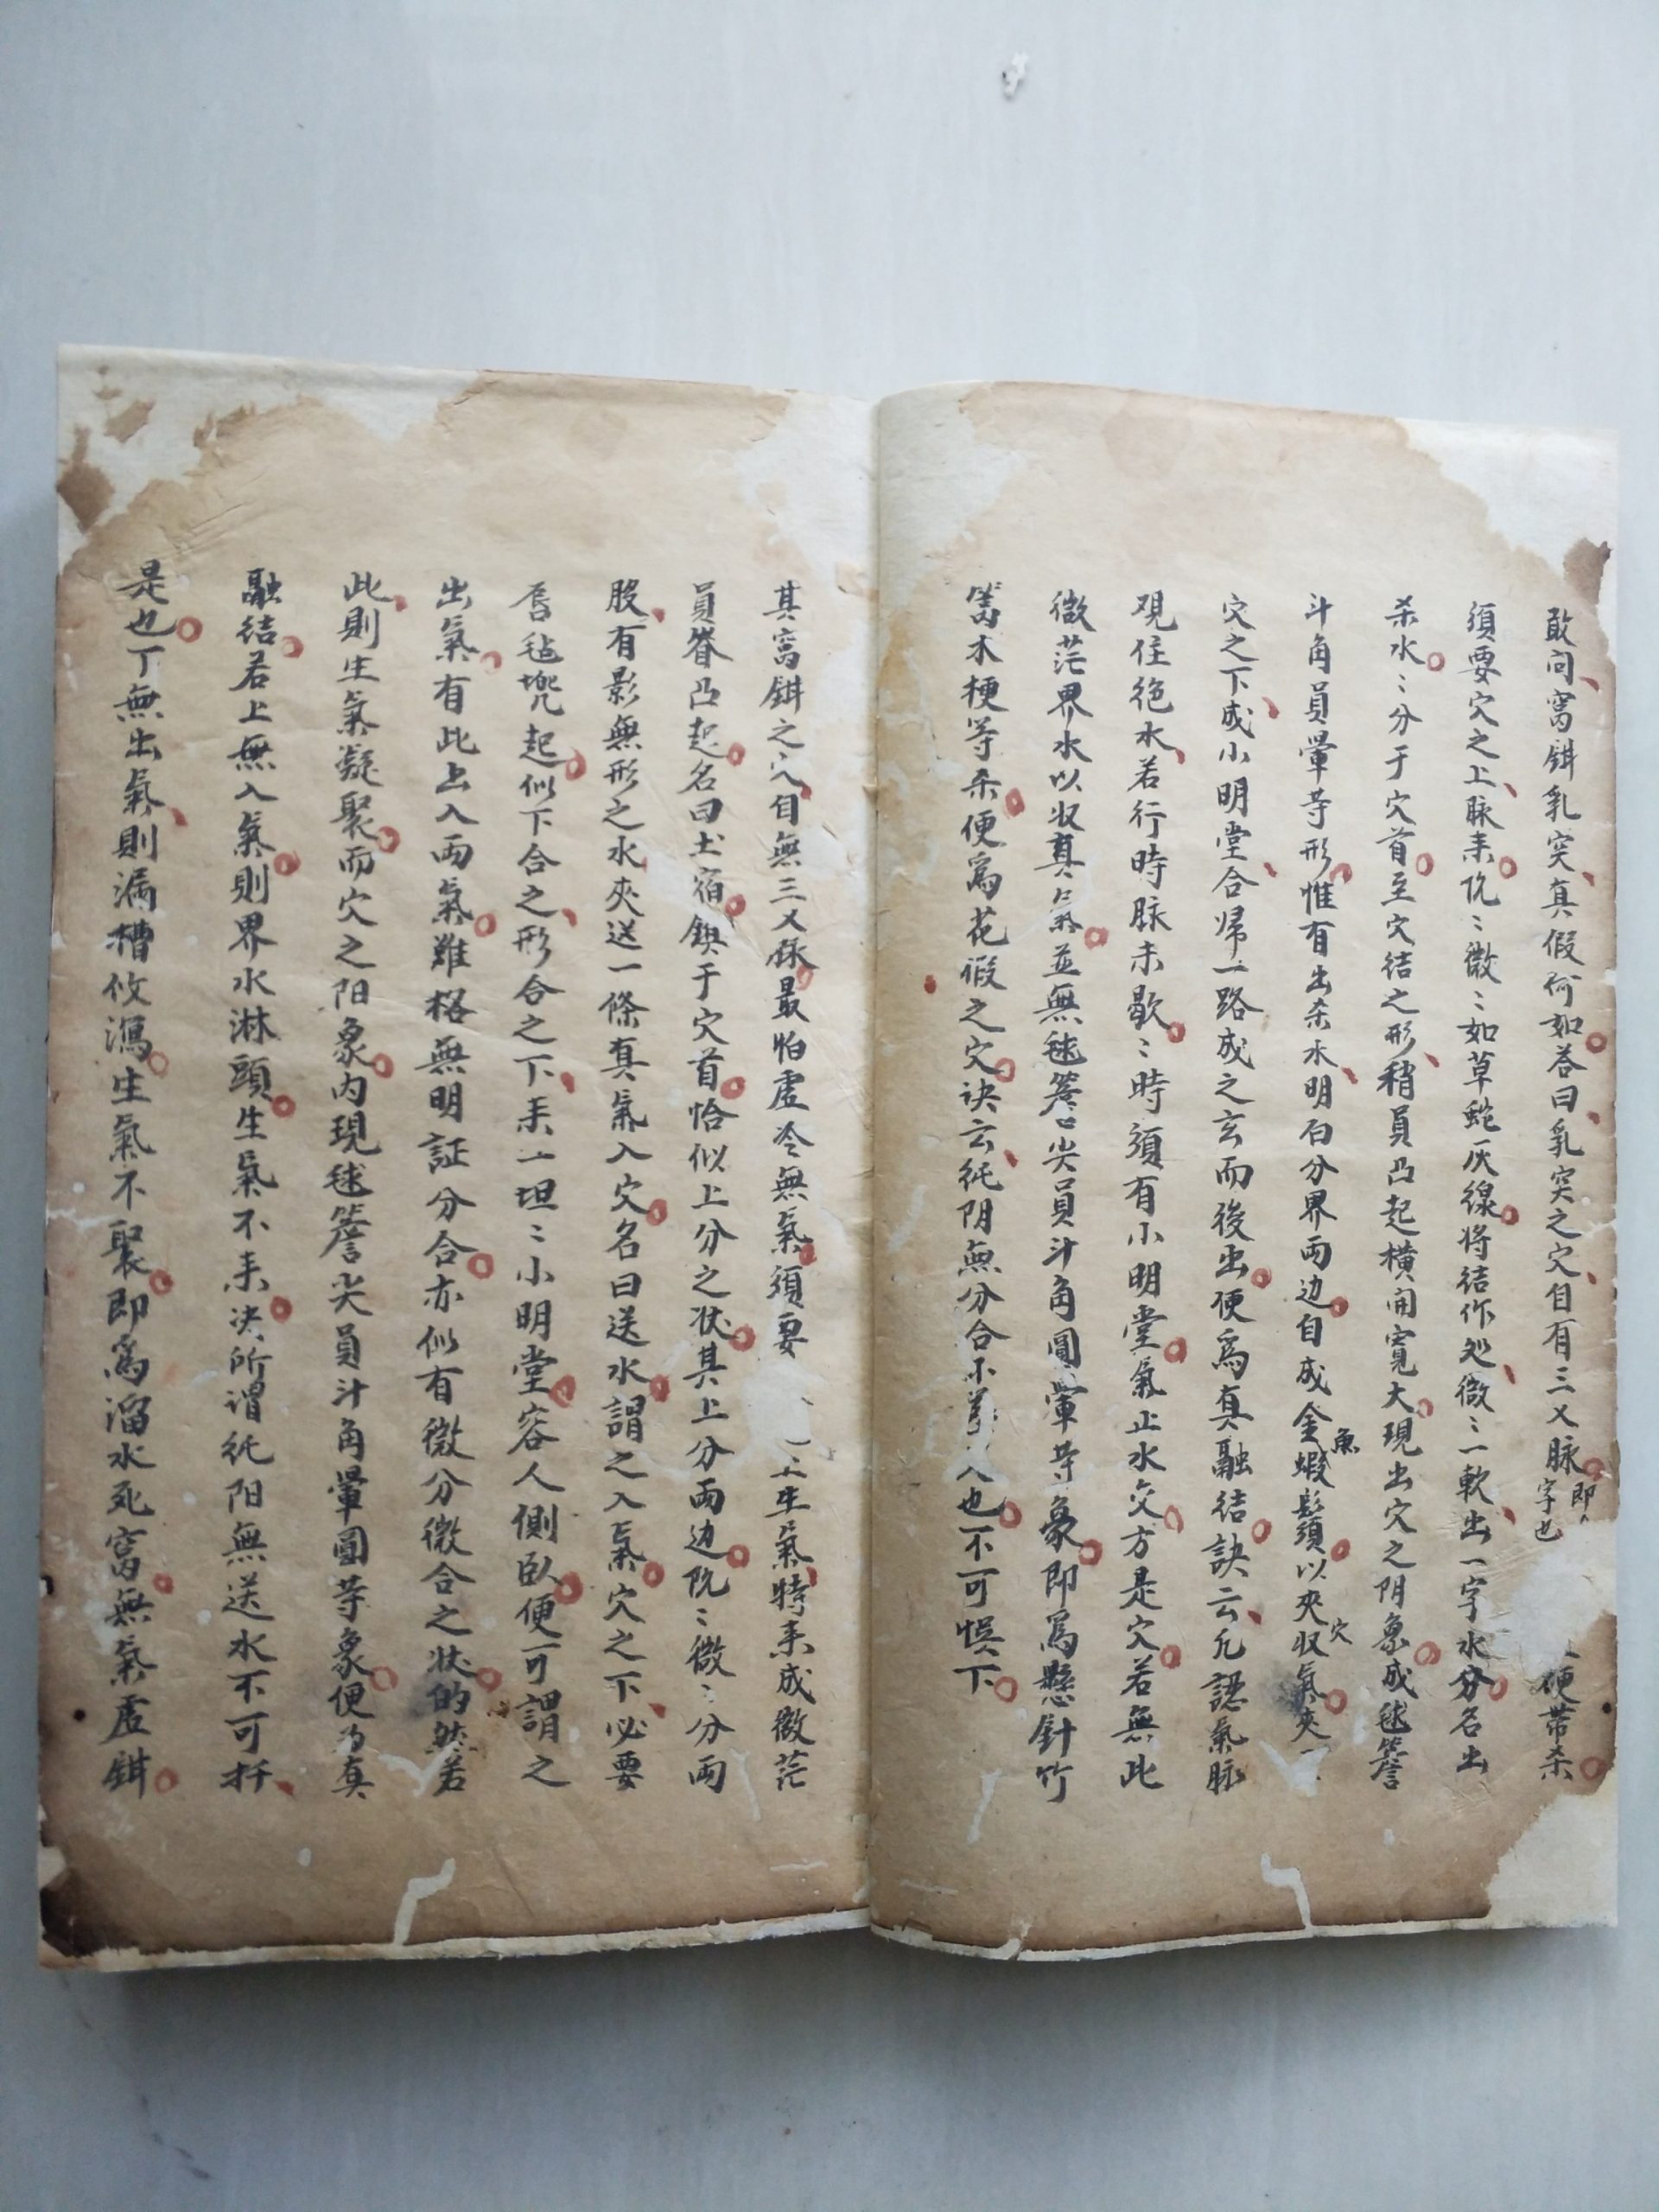 敢问窩鉗乳突真假何如答曰乳突之穴自有三乂脉即八字也硬帶杀
須要穴之上脉耒阬〻微〻如草蛇灰線将結作処微〻一軟出一字水分名出
杀水〻分于穴首至穴結之形稍員凸起横開寬大現出穴之阴象成毬簷
斗角員暈䒭形惟有出杀水明白分界両边自成金魚蝦鬚以夾収穴氣夾
穴之下成小明堂合帰一路成之玄而後出便爲真融結訣云凢認氣脉
观住绝水若行時脉未歇〻時須有小明堂氣止水交方是穴若無此
微茫界水以収真氣並無毬簷尖員斗角圓暈䒭象即爲懸針竹
篙木梗等杀便爲花假之穴诀云純阴無分合不人也不可悞下
其窩鉗之穴自無三乂脉最怕虚冷無氣須要上生氣特耒成微茫
員脊凸起名曰土宿鎮于穴首恰似上分之状其上分両边阬〻微〻分両
股有影無形之水夾送一條真氣入穴名曰送水謂之入氣穴之下必要
唇毡兠起似下合之形合之下耒一坦〻小明堂容人側臥便可謂之
出氣有此出入両氣雖格無明証分合亦似有微分微合之状的然若
此則生氣凝聚而穴之阳象内現毬簷尖員斗角暈圓䒭象便为真
融結若上無入氣則界水淋頭生氣不耒决所谓純阳無送水不可扦
是也丁無出氣則漏槽攸瀉生氣不聚即爲溜水死窩無氣虚鉗